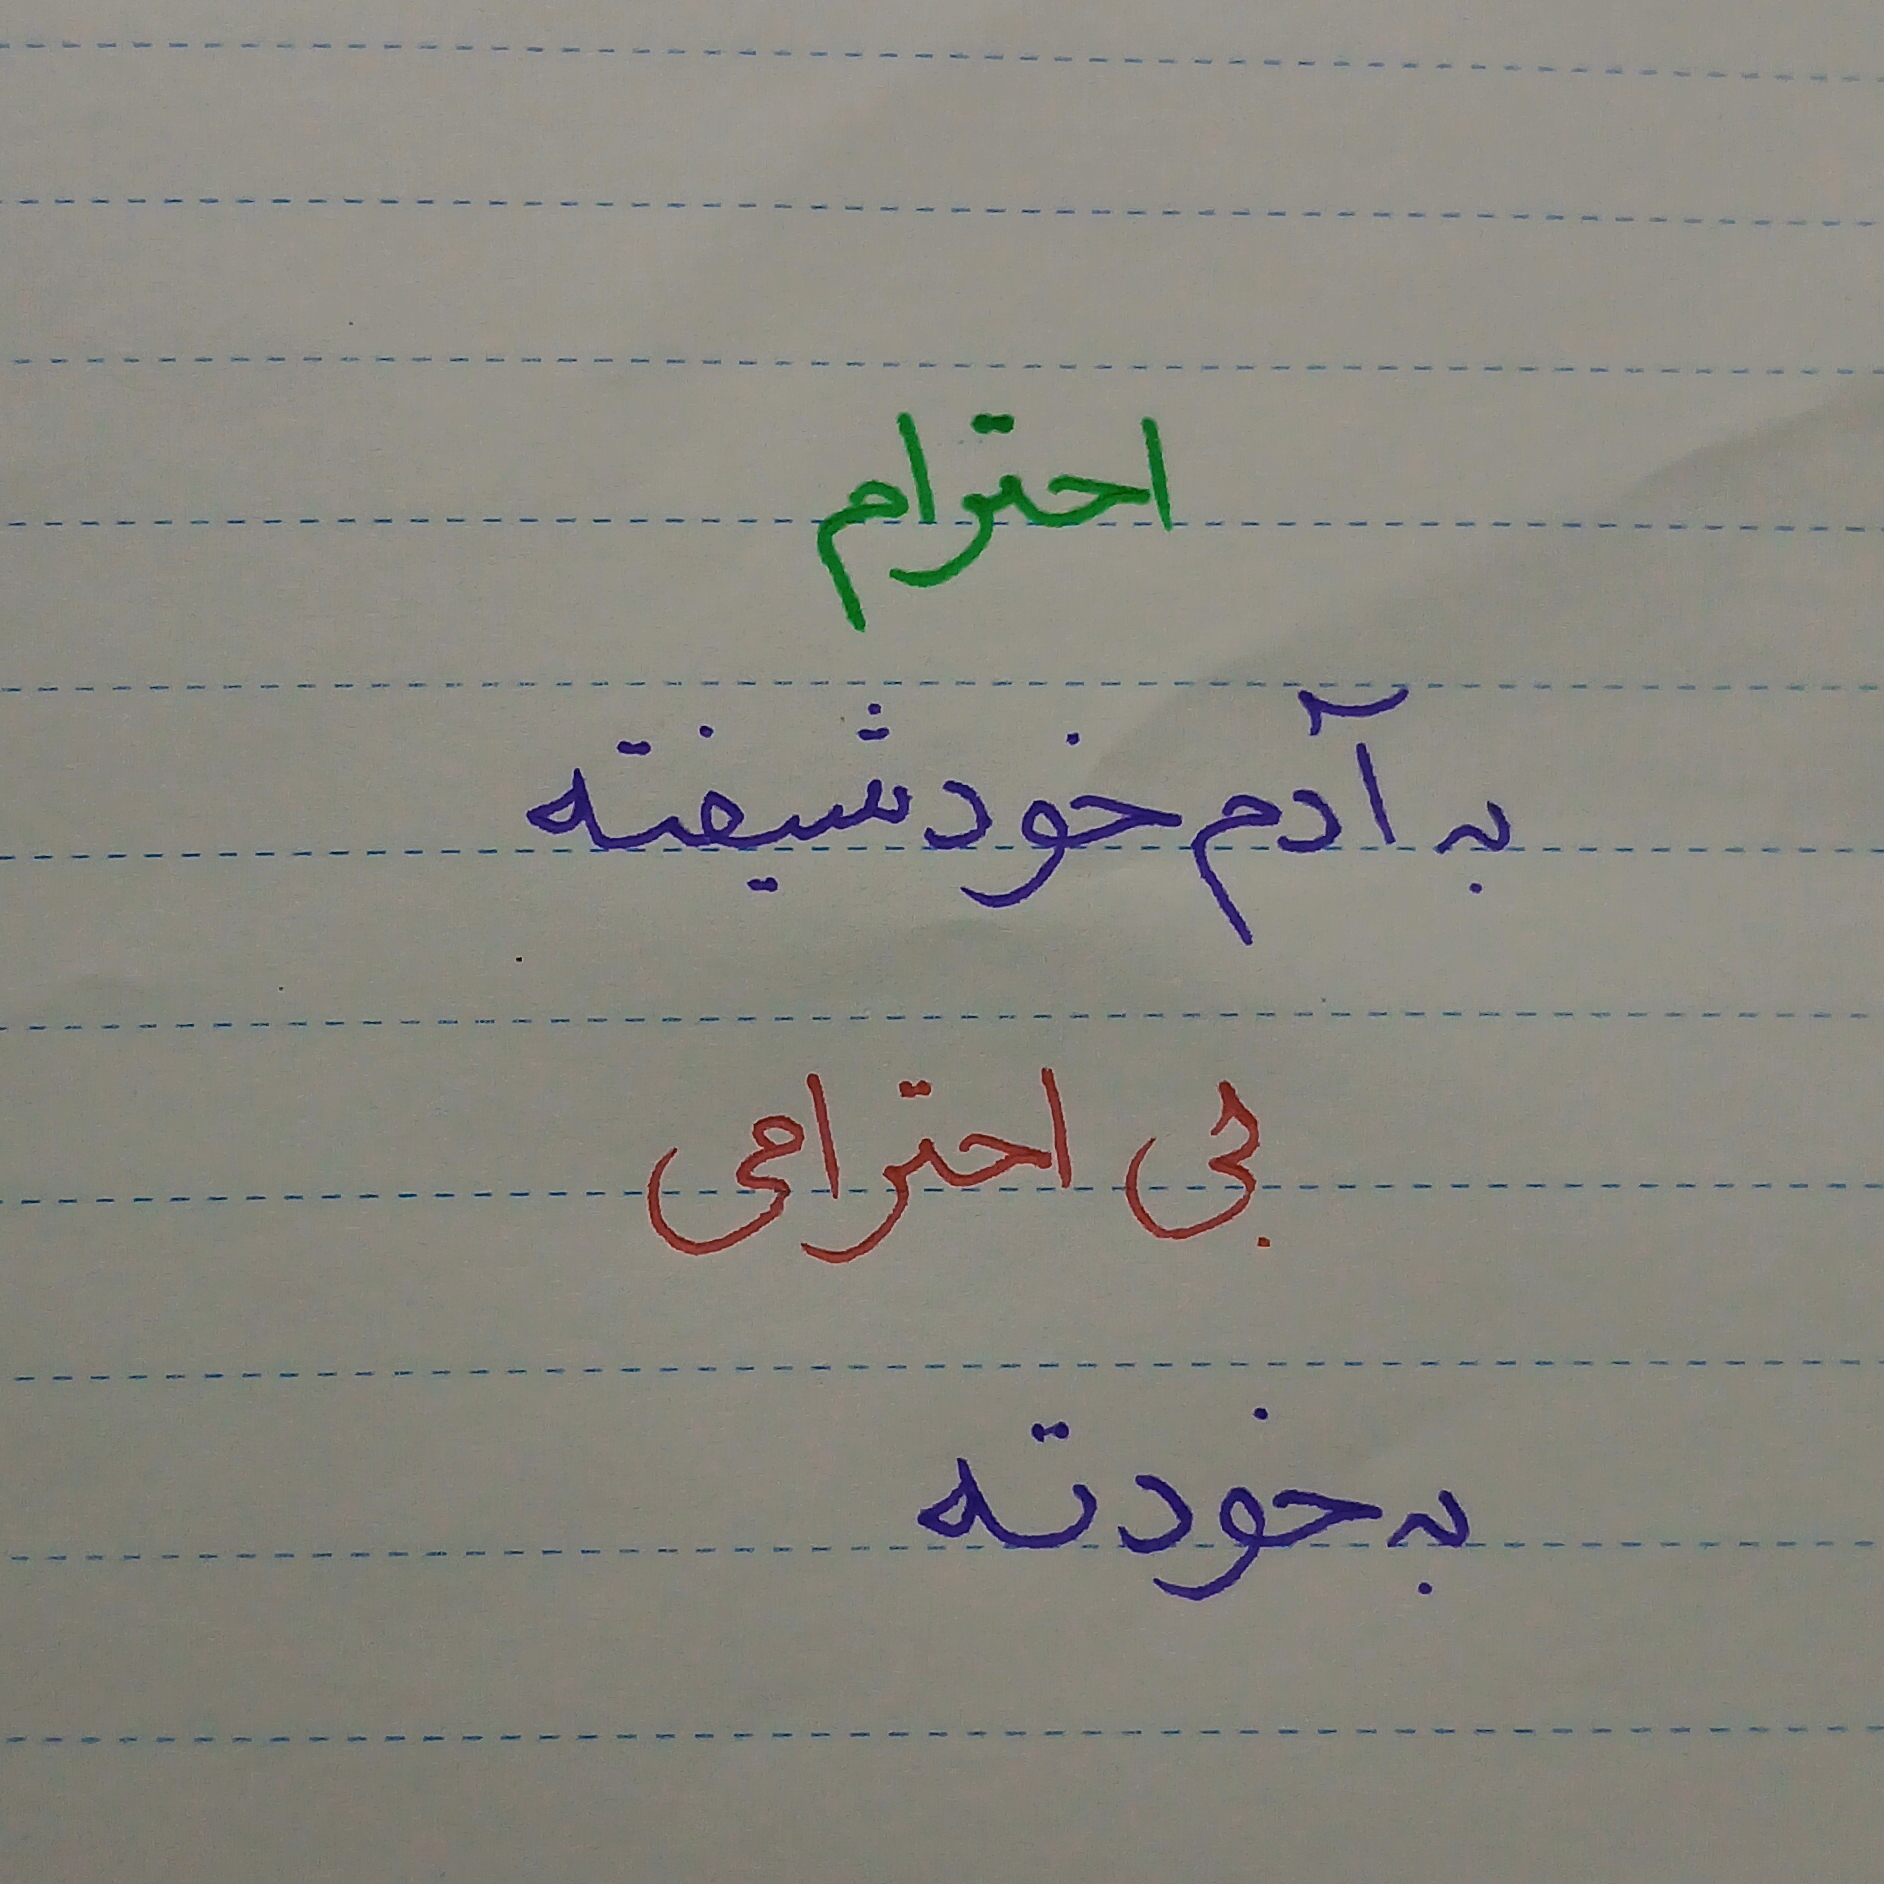 احترام
به آدم خودشیفته
بی احترامی
به خودته